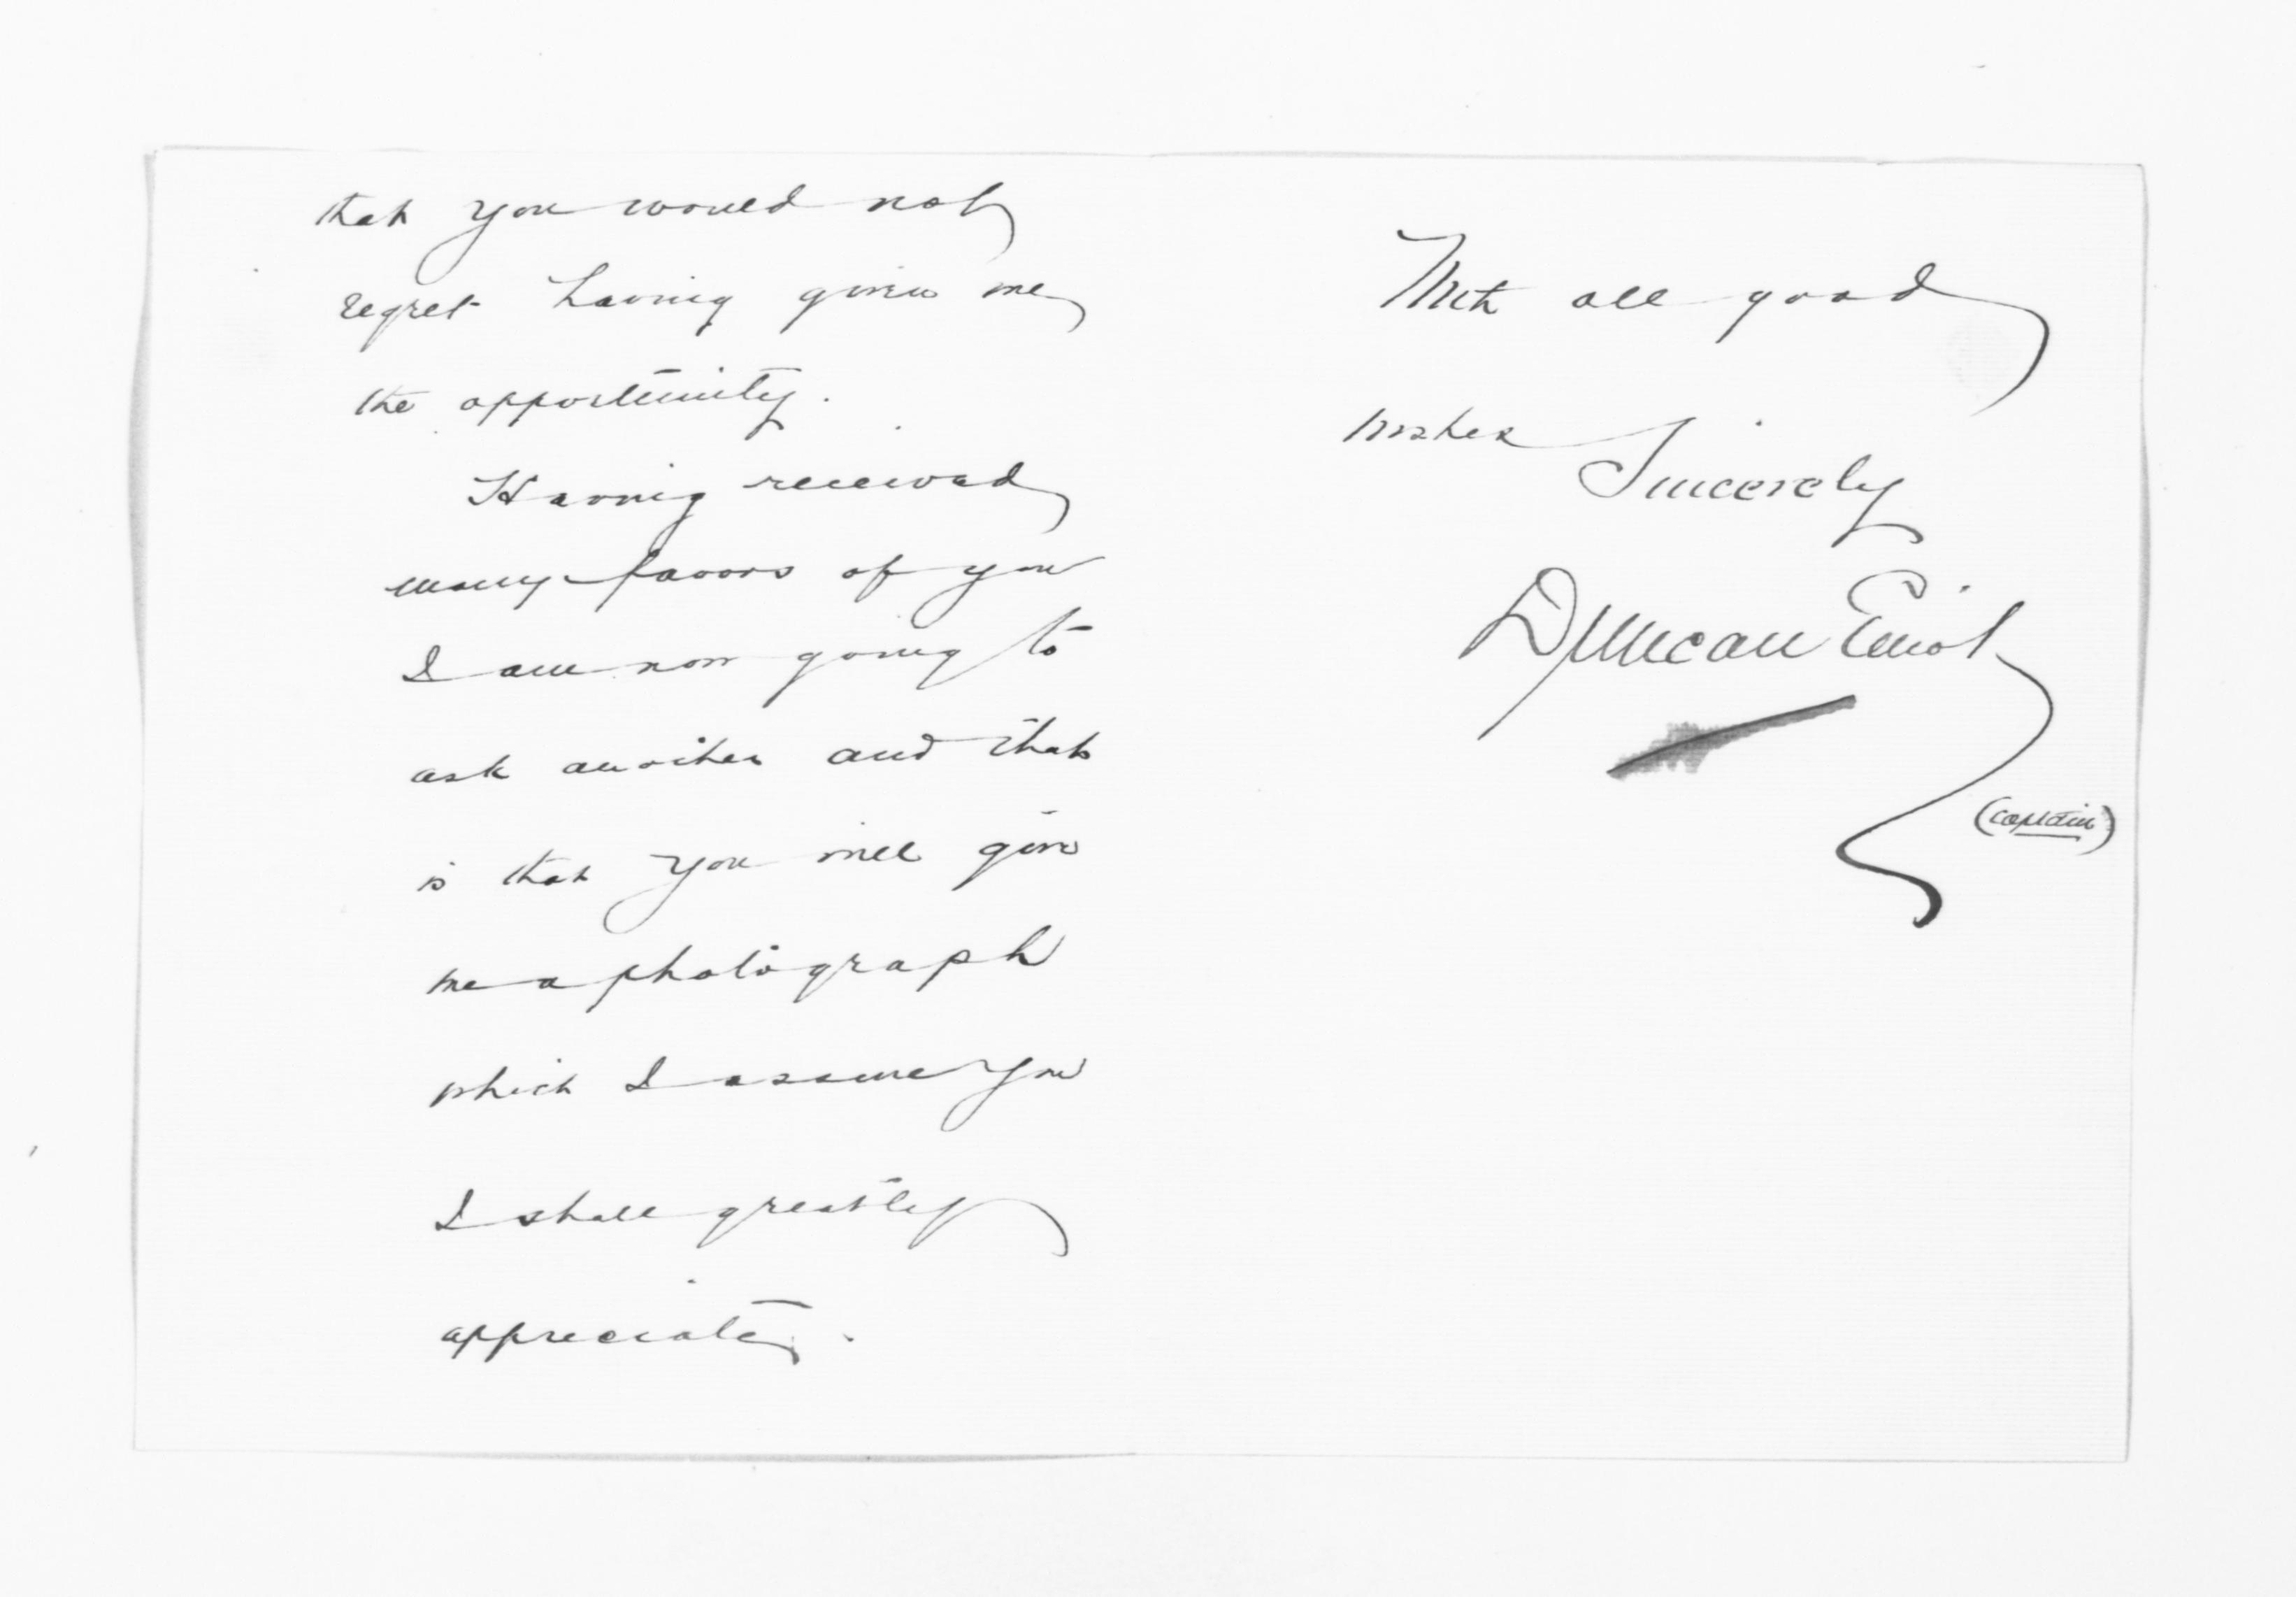 that you would not
regret having given me
the opportunity.
Having received
many favors of you
I am now going to
ask another and that
is that you will give
me a photograph
which I assure you
I shall greatly
appreciate.
With all good
wishes
Sincerely
Duncan Elliot
(Captain)